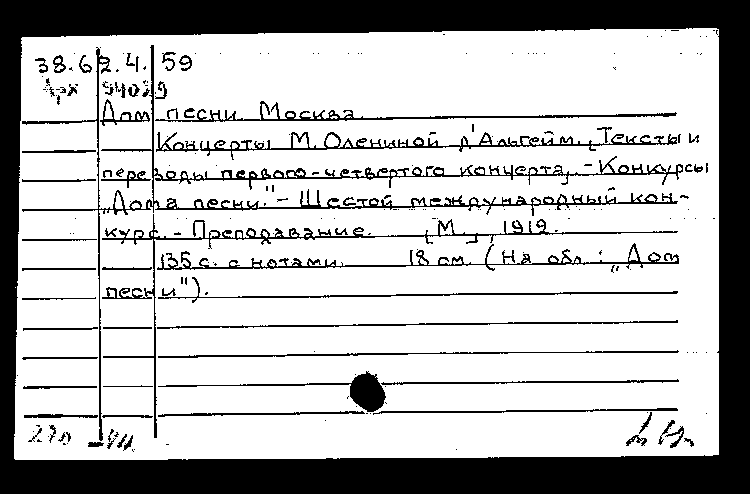 38.62.4.59
Арх 94029
Дом песни. Москва.
Концерты М. Олениной д'Альгейм. [Тексты и
переводы первого-четвертого концерта]. - Конкурсы
„Дома песни." - Шестой международный кон-
курс. - Преподавание. [М.], 1912.
135 с. с нотами. 18 см. (На обл.: „Дом
песни").